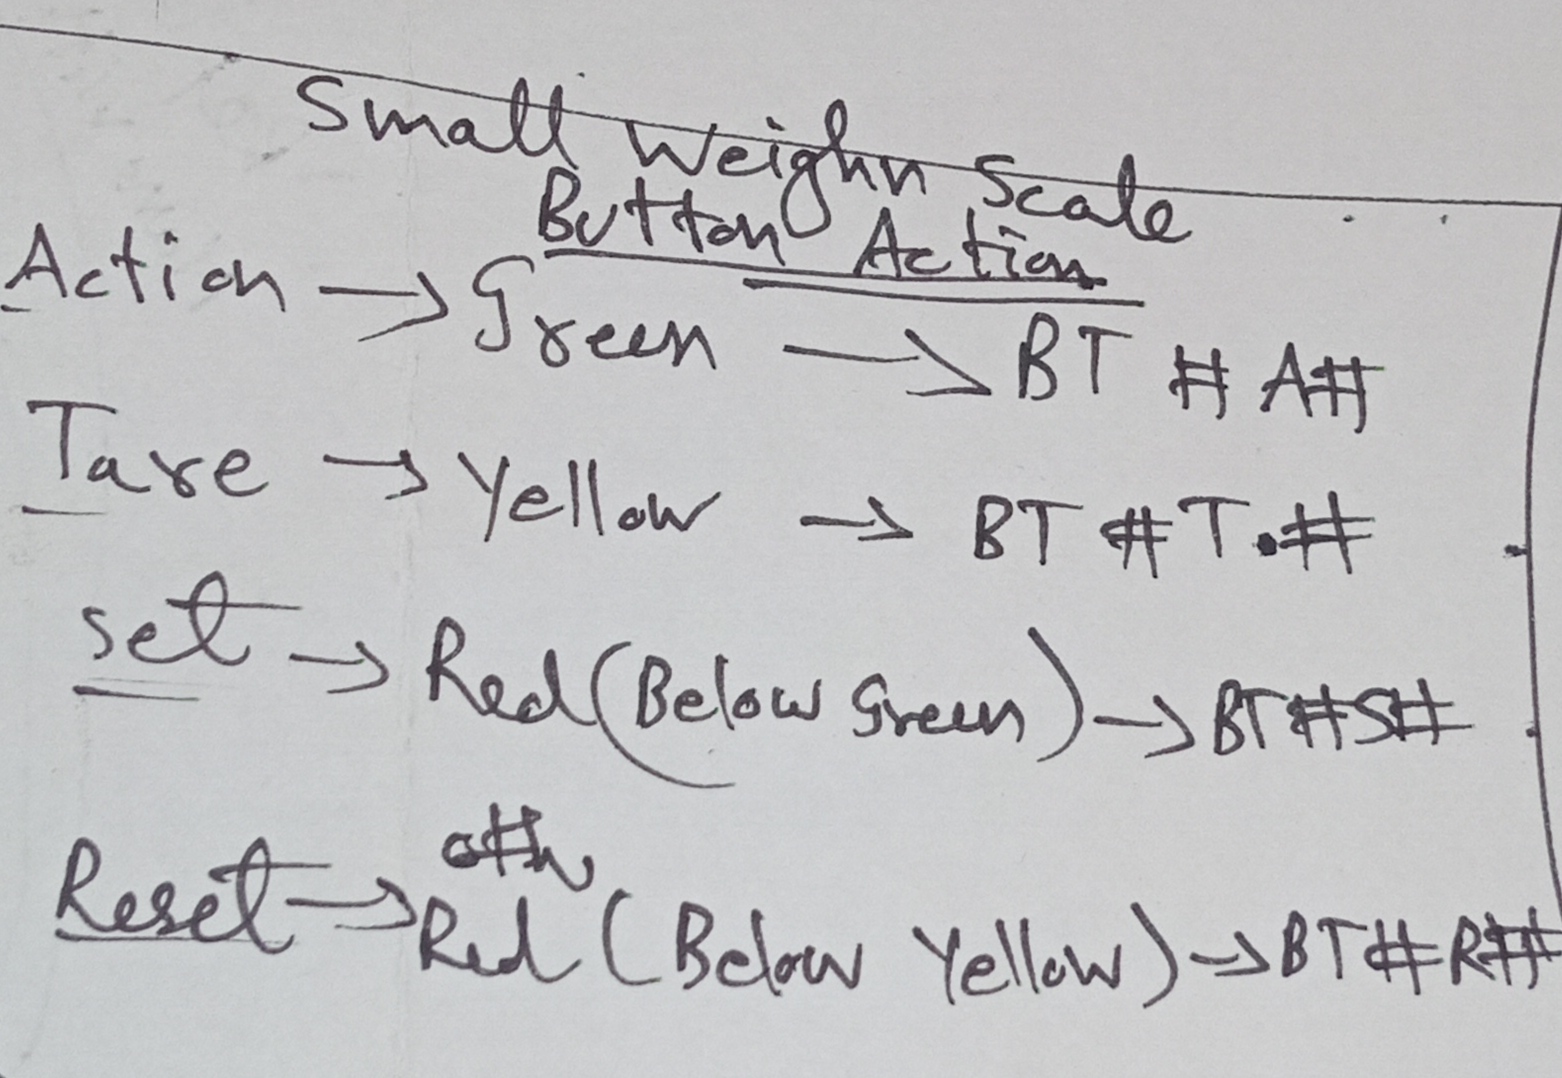 Small Weighn Scale
Button Action
Action → Green → BT # A#
Tare → Yellow → BT #T.#
set → Red (Below Green) → BT#S#
oth
Reset → Red (Below Yellow) → BT#R#